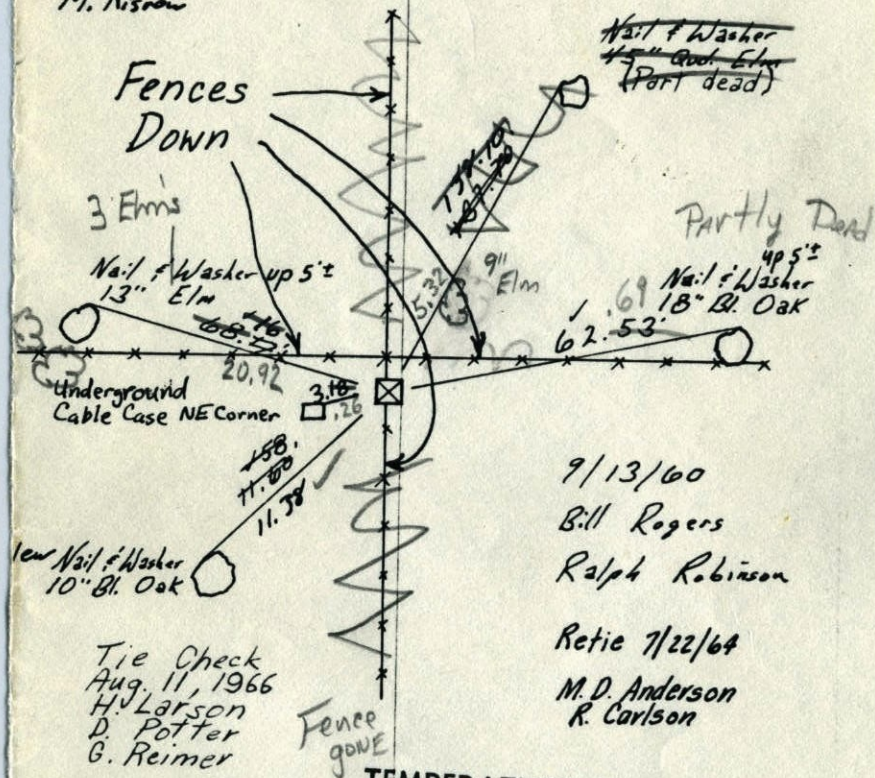 M. Risrow
Nail & Washer
45" Qud. Elm
(Part dead)
Fences
Down
3 Elm's
Partly Dead
Nail & Washer up 5'±
13" Elm
9"
Elm
5.32
up 5'±
Nail & Washer
18" Bl. Oak
.69
62.53'
20.92
Underground
Cable Case NE Corner
3.18
.26
158.
11.60
11.38
Nail & Washer
10" Bl. Oak
9/13/60
Bill Rogers
Ralph Robinson
Retie 7/22/64
M.D. Anderson
R. Carlson
Tie Check
Aug. 11, 1966
H. Larson
D. Potter
G. Reimer
Fence
gone